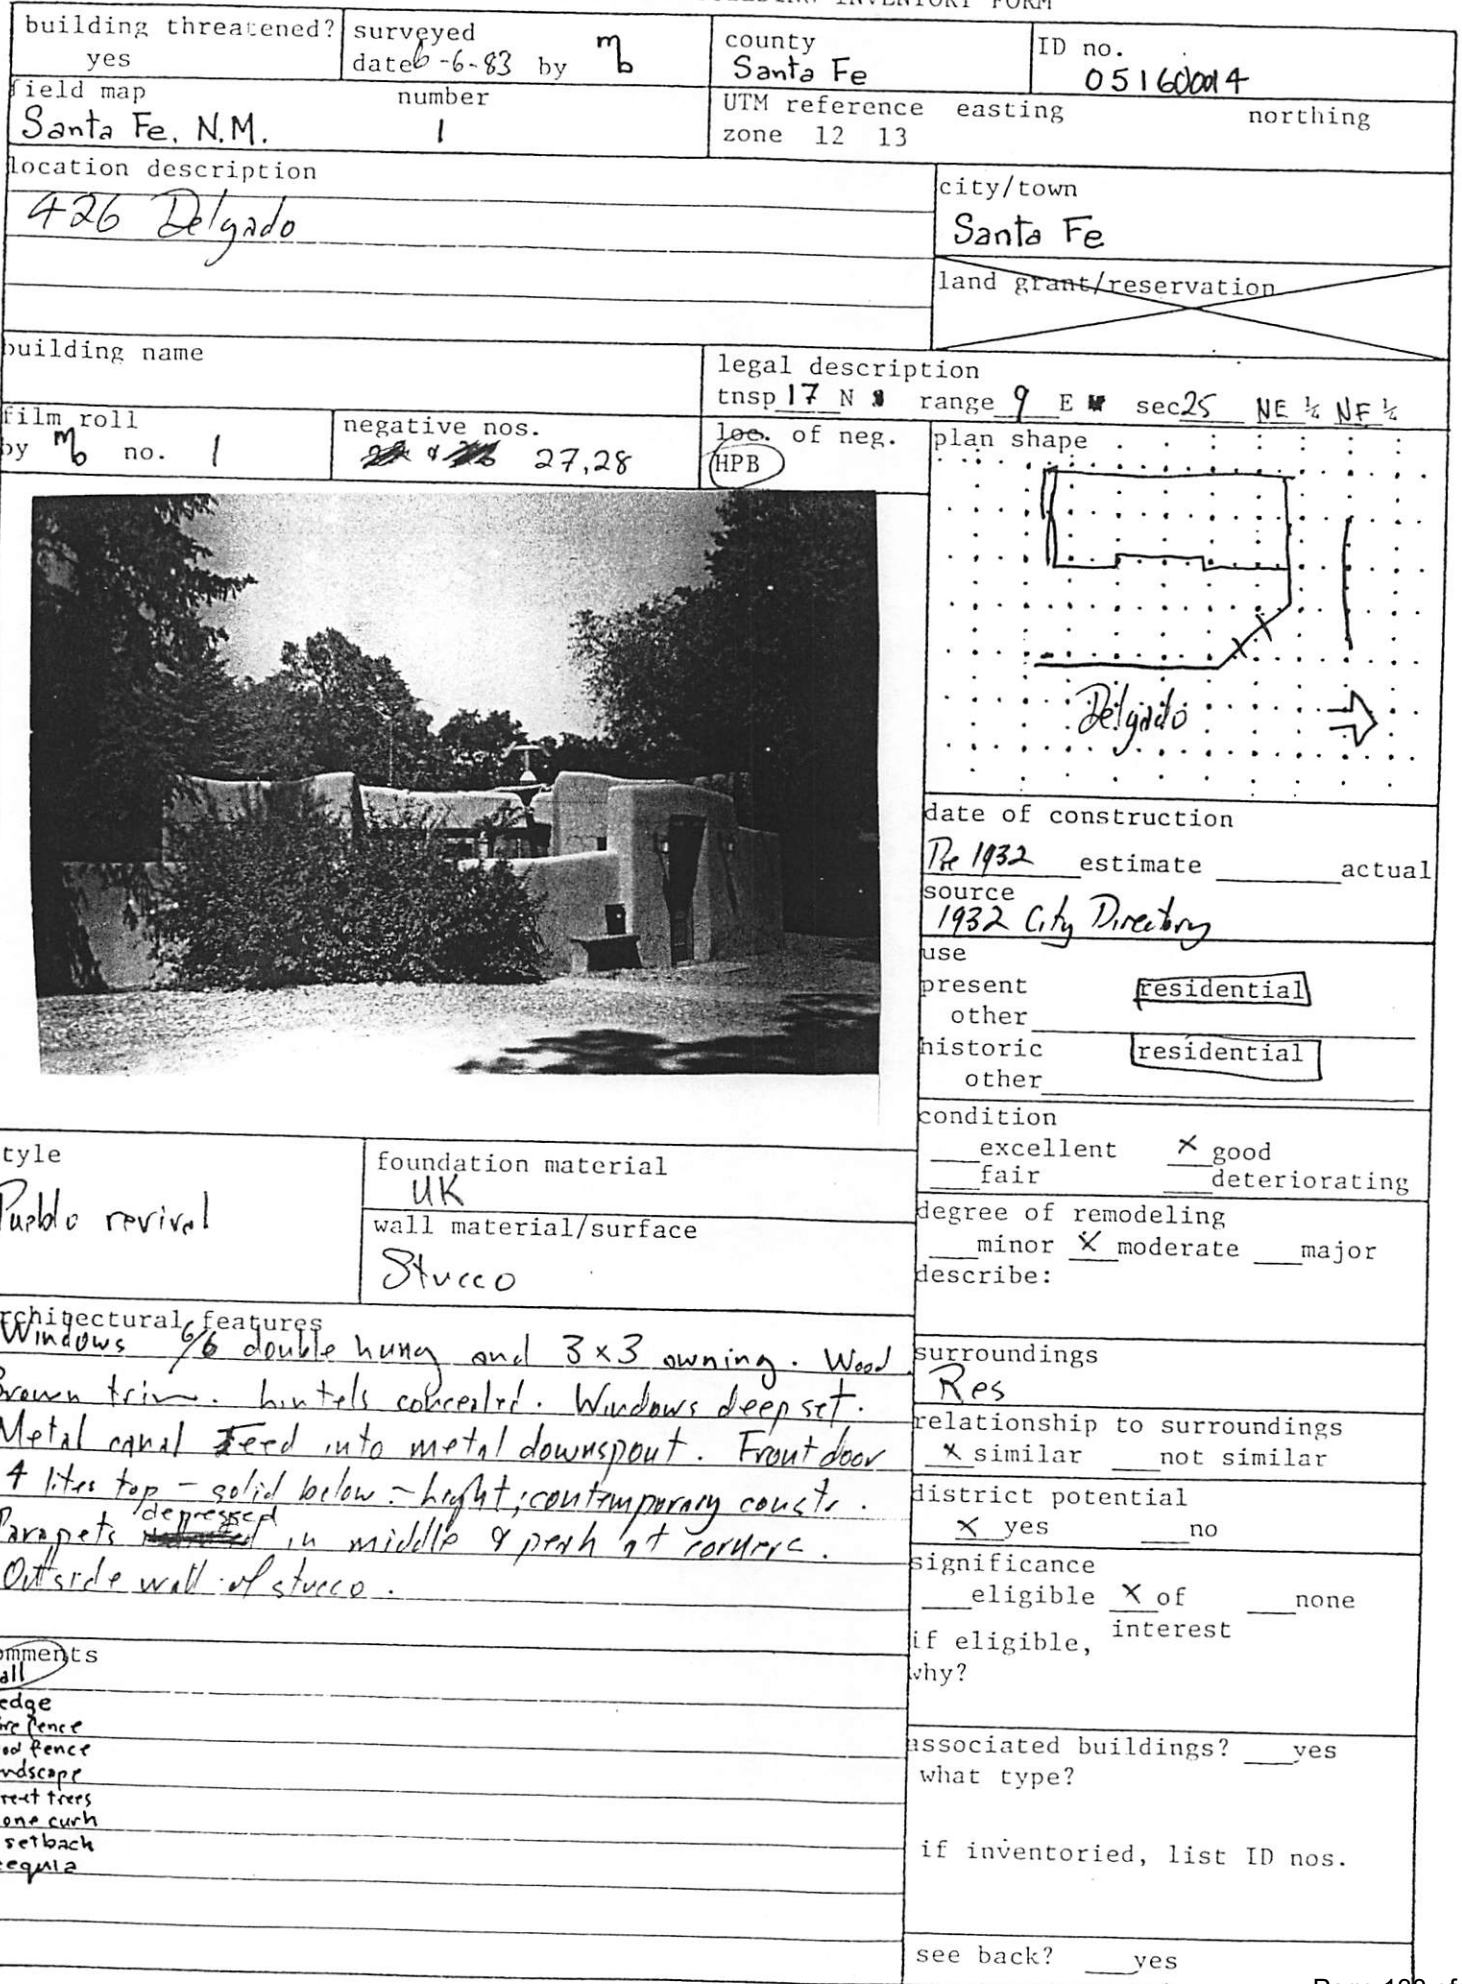 BUILDING INVENTORY FORM
building threatened?
yes
surveyed
date 6-6-83 by mb
county
Santa Fe
ID no.
05160014
field map number
Santa Fe, N.M. 1
UTM reference easting northing
zone 12 13
location description
426 Delgado
city/town
Santa Fe
land grant/reservation
building name
legal description
tnsp 17 N range 9 E sec 25 NE ¼ NE ¼
film roll
by mb no. 1
negative nos.
27,28
loc. of neg.
HPB
plan shape
Delgado
date of construction
Pre 1932 estimate ____ actual
source
1932 City Directory
use
present residential
other
historic residential
other
condition
___excellent X good
___fair ___deteriorating
degree of remodeling
___minor X moderate ___major
describe:
tyle
Pueblo revival
foundation material
UK
wall material/surface
Stucco
rchitectural features
Windows 6/6 double hung and 3x3 awning. Wood
Brown trim. Lintels concealed. Windows deep set.
Metal canal feed into metal downspout. Front door
4 lites top - solid below - light; contemporary constr.
Parapets depressed in middle & peak at corners.
Outside wall of stucco.
surroundings
Res
relationship to surroundings
X similar ___not similar
district potential
X yes ___no
significance
___eligible X of ___none
interest
if eligible,
why?
omments
all
edge
ire fence
ood fence
ndscape
reet trees
one curb
setback
cequia
associated buildings? ___yes
what type?
if inventoried, list ID nos.
see back? ___yes